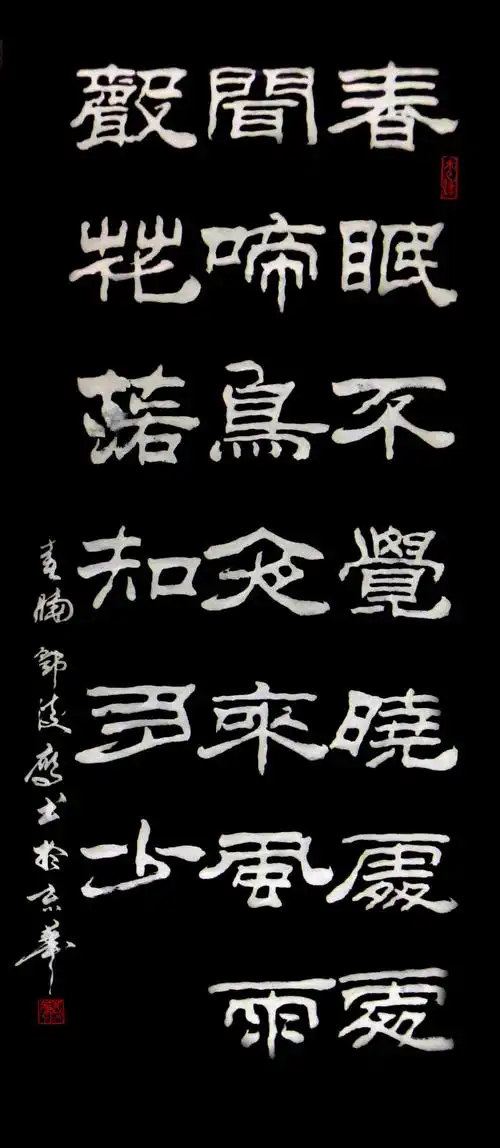 春眠不覺曉處處
聞啼鳥夜來風雨
聲花落知多少
春曉 郭凌鷹书於京華